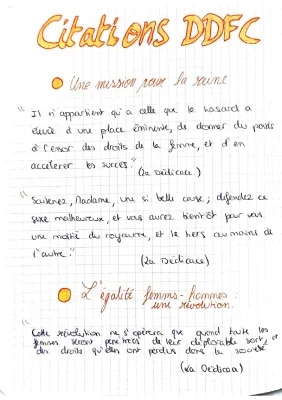 Citations DDFC
Une mission pour la reine
" Il n'appartient qu'à celle que le hasard a
élevée à une place éminente, de donner du poids
à l'essor des droits de la femme, et d'en
accélérer les succès." (La Dédicace)
"Soutenez, Madame, une si belle cause ; défendez ce
sexe malheureux, et vous aurez bientôt pour vous
une moitié du royaume, et le tiers au moins de
l'autre." (La Dédicace)
L'égalité femmes-hommes :
une révolution.
"Cette révolution ne s'opérera que quand toutes les
femmes seront pénétrées de leur déplorable sort, et
des droits qu'elles ont perdus dans la société"
(La Dédicace)